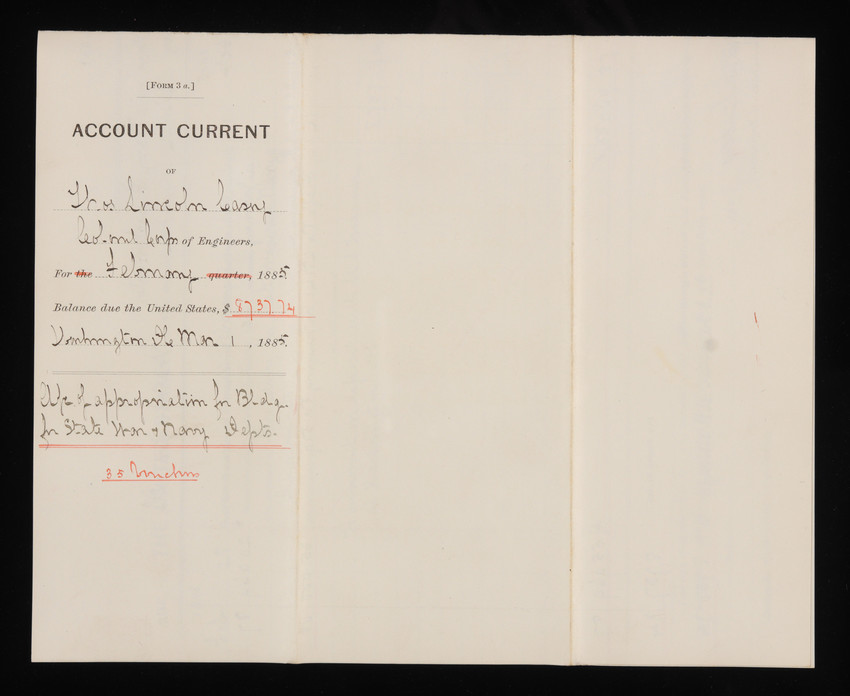 [FORM 3 a.]
ACCOUNT CURRENT
OF
Thos Lincoln Casey
Colonel Corps of Engineers,
For the February quarter, 1885.
Balance due the United States, $ 8737.74
Washington DC Mar 1, 1885.
a/c of appropriation for Bldg.
for State War & Navy Depts.
35 Vouchers